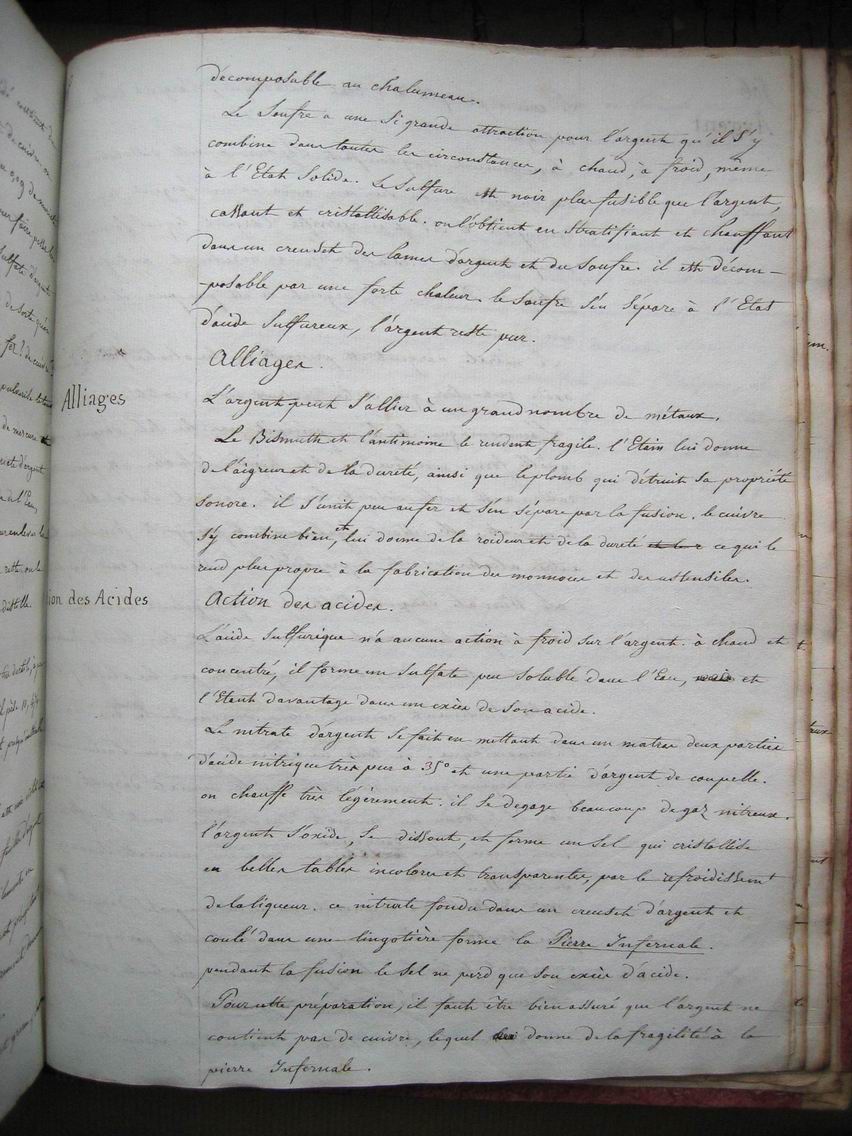 décomposable au chalumeau.
Le Soufre a une si grande attraction pour l'argent qu'il s'y
combine dans toutes les circonstances, à chaud, à froid, même
à l'Etat Solide. Le Sulfure est noir plus fusible que l'argent,
cassant et cristallisable. on l'obtient en stratifiant et chauffant
dans un creuset des lames d'argent et du soufre. il est décom-
-posable par une forte chaleur. le soufre s'en sépare à l'Etat
d'acide Sulfureux, l'argent reste pur.
Alliages.
Alliages
L'argent peut s'allier à un grand nombre de métaux.
Le Bismuth et l'antimoine le rendent fragile. l'Etain lui donne
de l'aigreur et de la dureté, ainsi que le plomb qui détruit sa propriété
sonore. il s'unit peu au fer et s'en sépare par la fusion. le cuivre
s'y combine bien, et lui donne de la roideur et de la dureté ce qui le
rend plus propre à la fabrication des monnoies et des ustensiles.
Action des acides.
ion des Acides
L'acide sulfurique n'a aucune action à froid sur l'argent. à chaud et
concentré, il forme un sulfate peu soluble dans l'Eau, mais et
l'Etant davantage dans un excès de son acide.
Le nitrate d'argent se fait en mettant dans un matras deux parties
d'acide nitrique très pur à 35° et une partie d'argent de coupelle.
on chauffe très légèrement. il se degage beaucoup de gaz nitreux.
l'argent s'oxide, se dissout, et forme un sel qui cristallise
en belles tables incolores et transparentes, par le refroidissemt
de la liqueur. ce nitrate fondu dans un creuset d'argent et
coulé dans une lingotière forme la Pierre Infernale.
pendant la fusion le sel ne perd que son excès d'acide.
Pour cette préparation, il faut être bien assuré que l'argent ne
contient pas de cuivre, lequel donne de la fragilité à la
pierre Infernale.